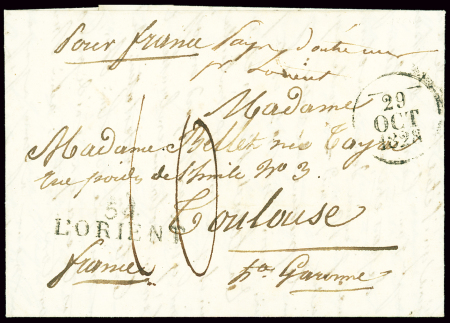 Pour france Pays d'outre mer
pr Lorient
29
OCT
1828
Madame
Madame Bellet née Tayr
rue de No 3.
Toulouse
54
L'ORIENT
10
france hte Garonne